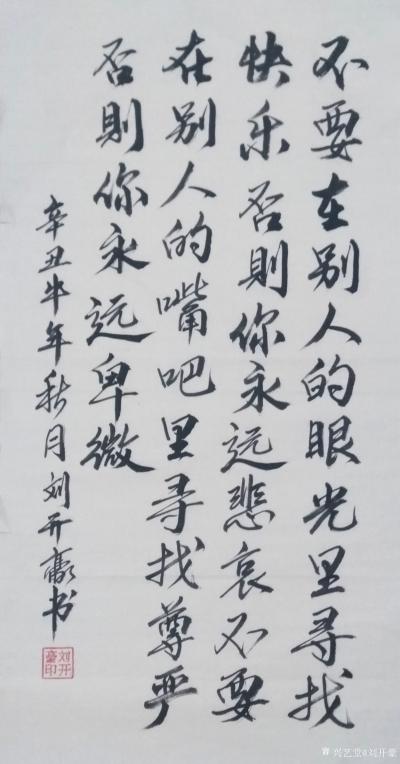 不要在别人的眼光里寻找
快乐否則你永远悲哀不要
在别人的嘴吧里寻找尊严
否則你永远卑微
辛丑牛年秋月刘开豪书
刘开
豪印
兴艺堂@刘开豪